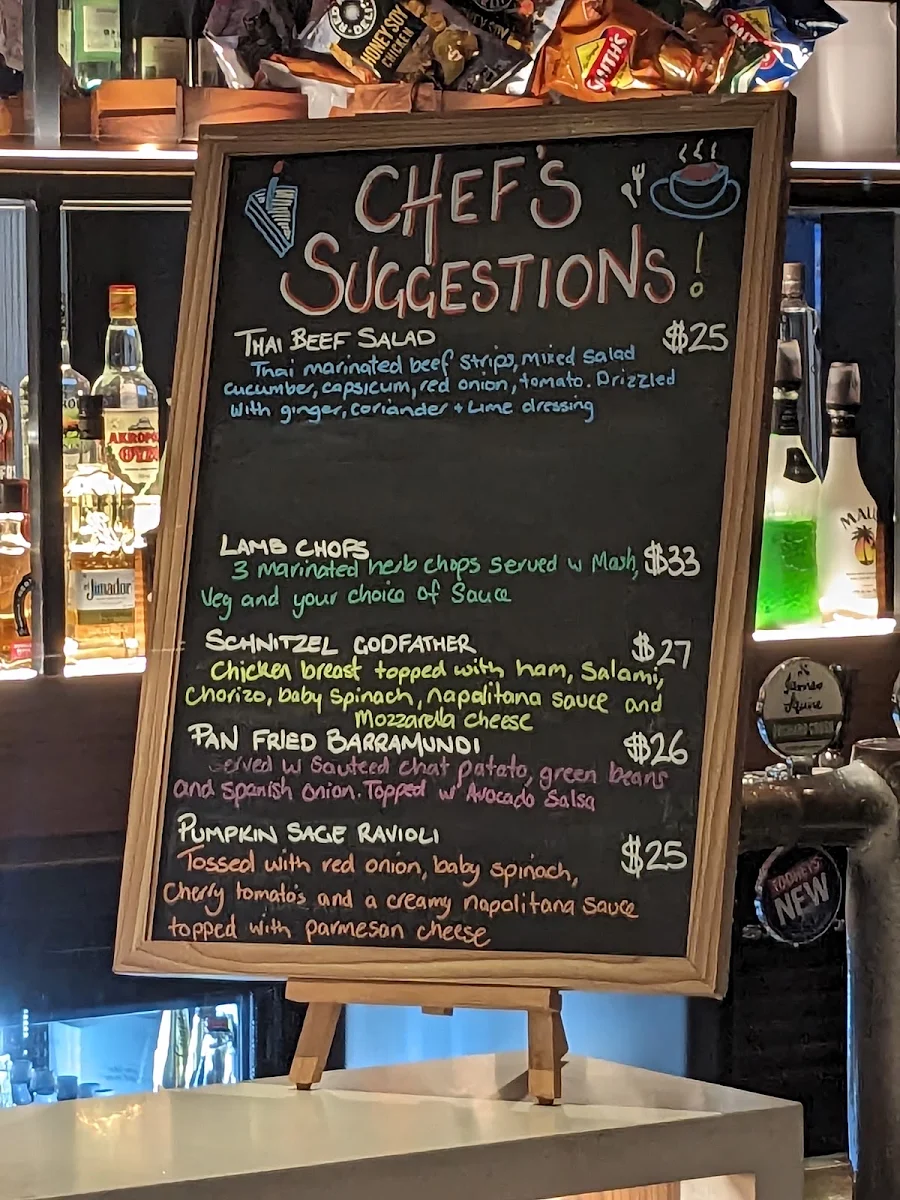 HONEY SOY
CHICKEN
HONEY SOY
SMITH'S
CHEF'S
SUGGESTIONS!
THAI BEEF SALAD $25
Thai marinated beef strips, mixed salad
cucumber, capsicum, red onion, tomato. Drizzled
with ginger, coriander + Lime dressing
LAMB CHOPS $33
3 Marinated herb chops served w Mash,
Veg and your choice of Sauce
SCHNITZEL GODFATHER $27
Chicken breast topped with ham, Salami,
Chorizo, baby spinach, napolitana sauce and
Mozzarella cheese
PAN FRIED BARRAMUNDI $26
served w Sauteed chat potato, green beans
and spanish onion. Topped w Avocado Salsa
PUMPKIN SAGE RAVIOLI $25
Tossed with red onion, baby spinach,
Cherry tomato's and a creamy napolitana sauce
topped with parmesan cheese
el Jimador
TOOHEYS
NEW